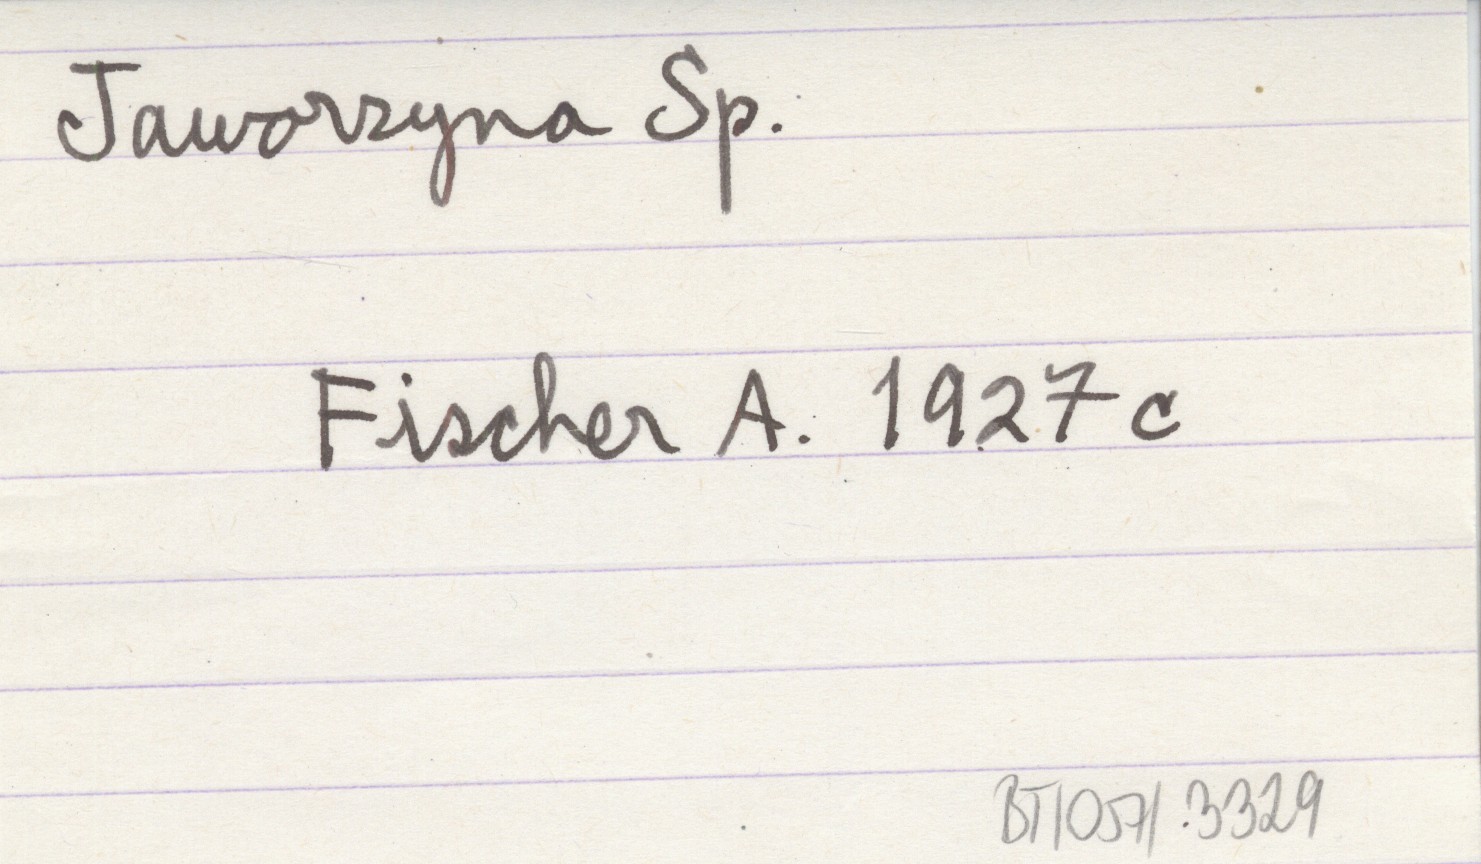 Jaworzyna Sp.
Fischer A. 1927c
BT/057/.3329